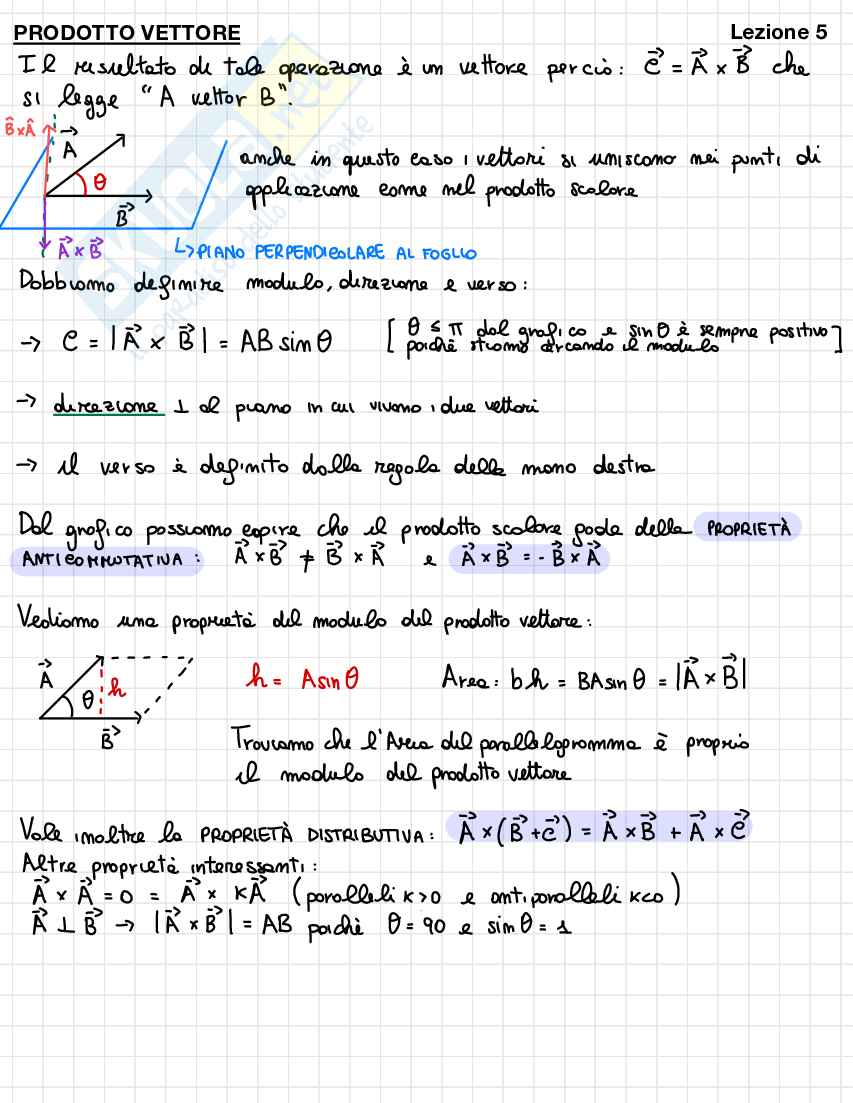 PRODOTTO VETTORE
Lezione 5
Il risultato di tale operazione è un vettore perciò: C⃗ = A⃗ × B⃗ che
si legge "A vettor B".
B̂×Â
A⃗
θ
B⃗
A⃗ × B⃗
anche in questo caso i vettori si uniscono nei punti di
applicazione come nel prodotto scalare
↳ PIANO PERPENDICOLARE AL FOGLIO
Dobbiamo definire modulo, direzione e verso:
→ C = |A⃗ × B⃗| = AB sin θ [θ ≤ π dal grafico e sin θ è sempre positivo
poichè stiamo cercando il modulo]
→ direzione ⊥ al piano in cui vivono i due vettori
→ il verso è definito dalla regola della mano destra
Dal grafico possiamo capire che il prodotto scalare gode della PROPRIETÀ
ANTICOMMUTATIVA: A⃗ × B⃗ ≠ B⃗ × A⃗ e A⃗ × B⃗ = - B⃗ × A⃗
Vediamo una proprietà del modulo del prodotto vettore:
A⃗
θ
h
B⃗
h = A sin θ
Area: bh = BA sin θ = |A⃗ × B⃗|
Troviamo che l'Area del parallelogramma è proprio
il modulo del prodotto vettore
Vale inoltre la PROPRIETÀ DISTRIBUTIVA: A⃗ × (B⃗ + C⃗) = A⃗ × B⃗ + A⃗ × C⃗
Altre proprietà interessanti:
A⃗ × A⃗ = 0 = A⃗ × KA⃗ (paralleli K>0 e antiparalleli K<0)
A⃗ ⊥ B⃗ → |A⃗ × B⃗| = AB poichè θ = 90 e sin θ = 1